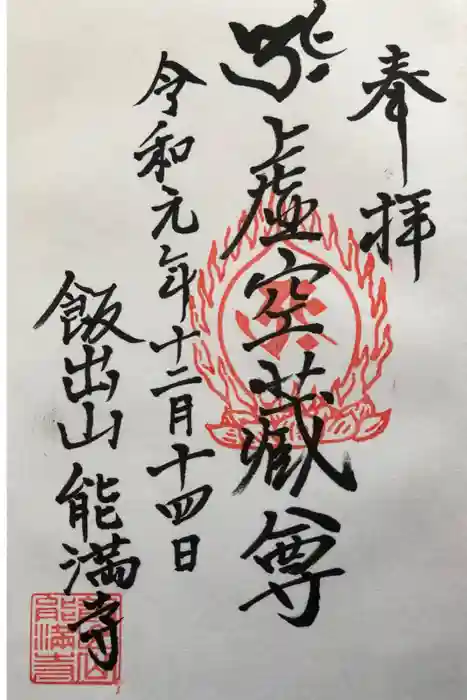 奉拝
上虚空蔵尊
令和元年十二月十四日
飯出山 能満寺
能満寺